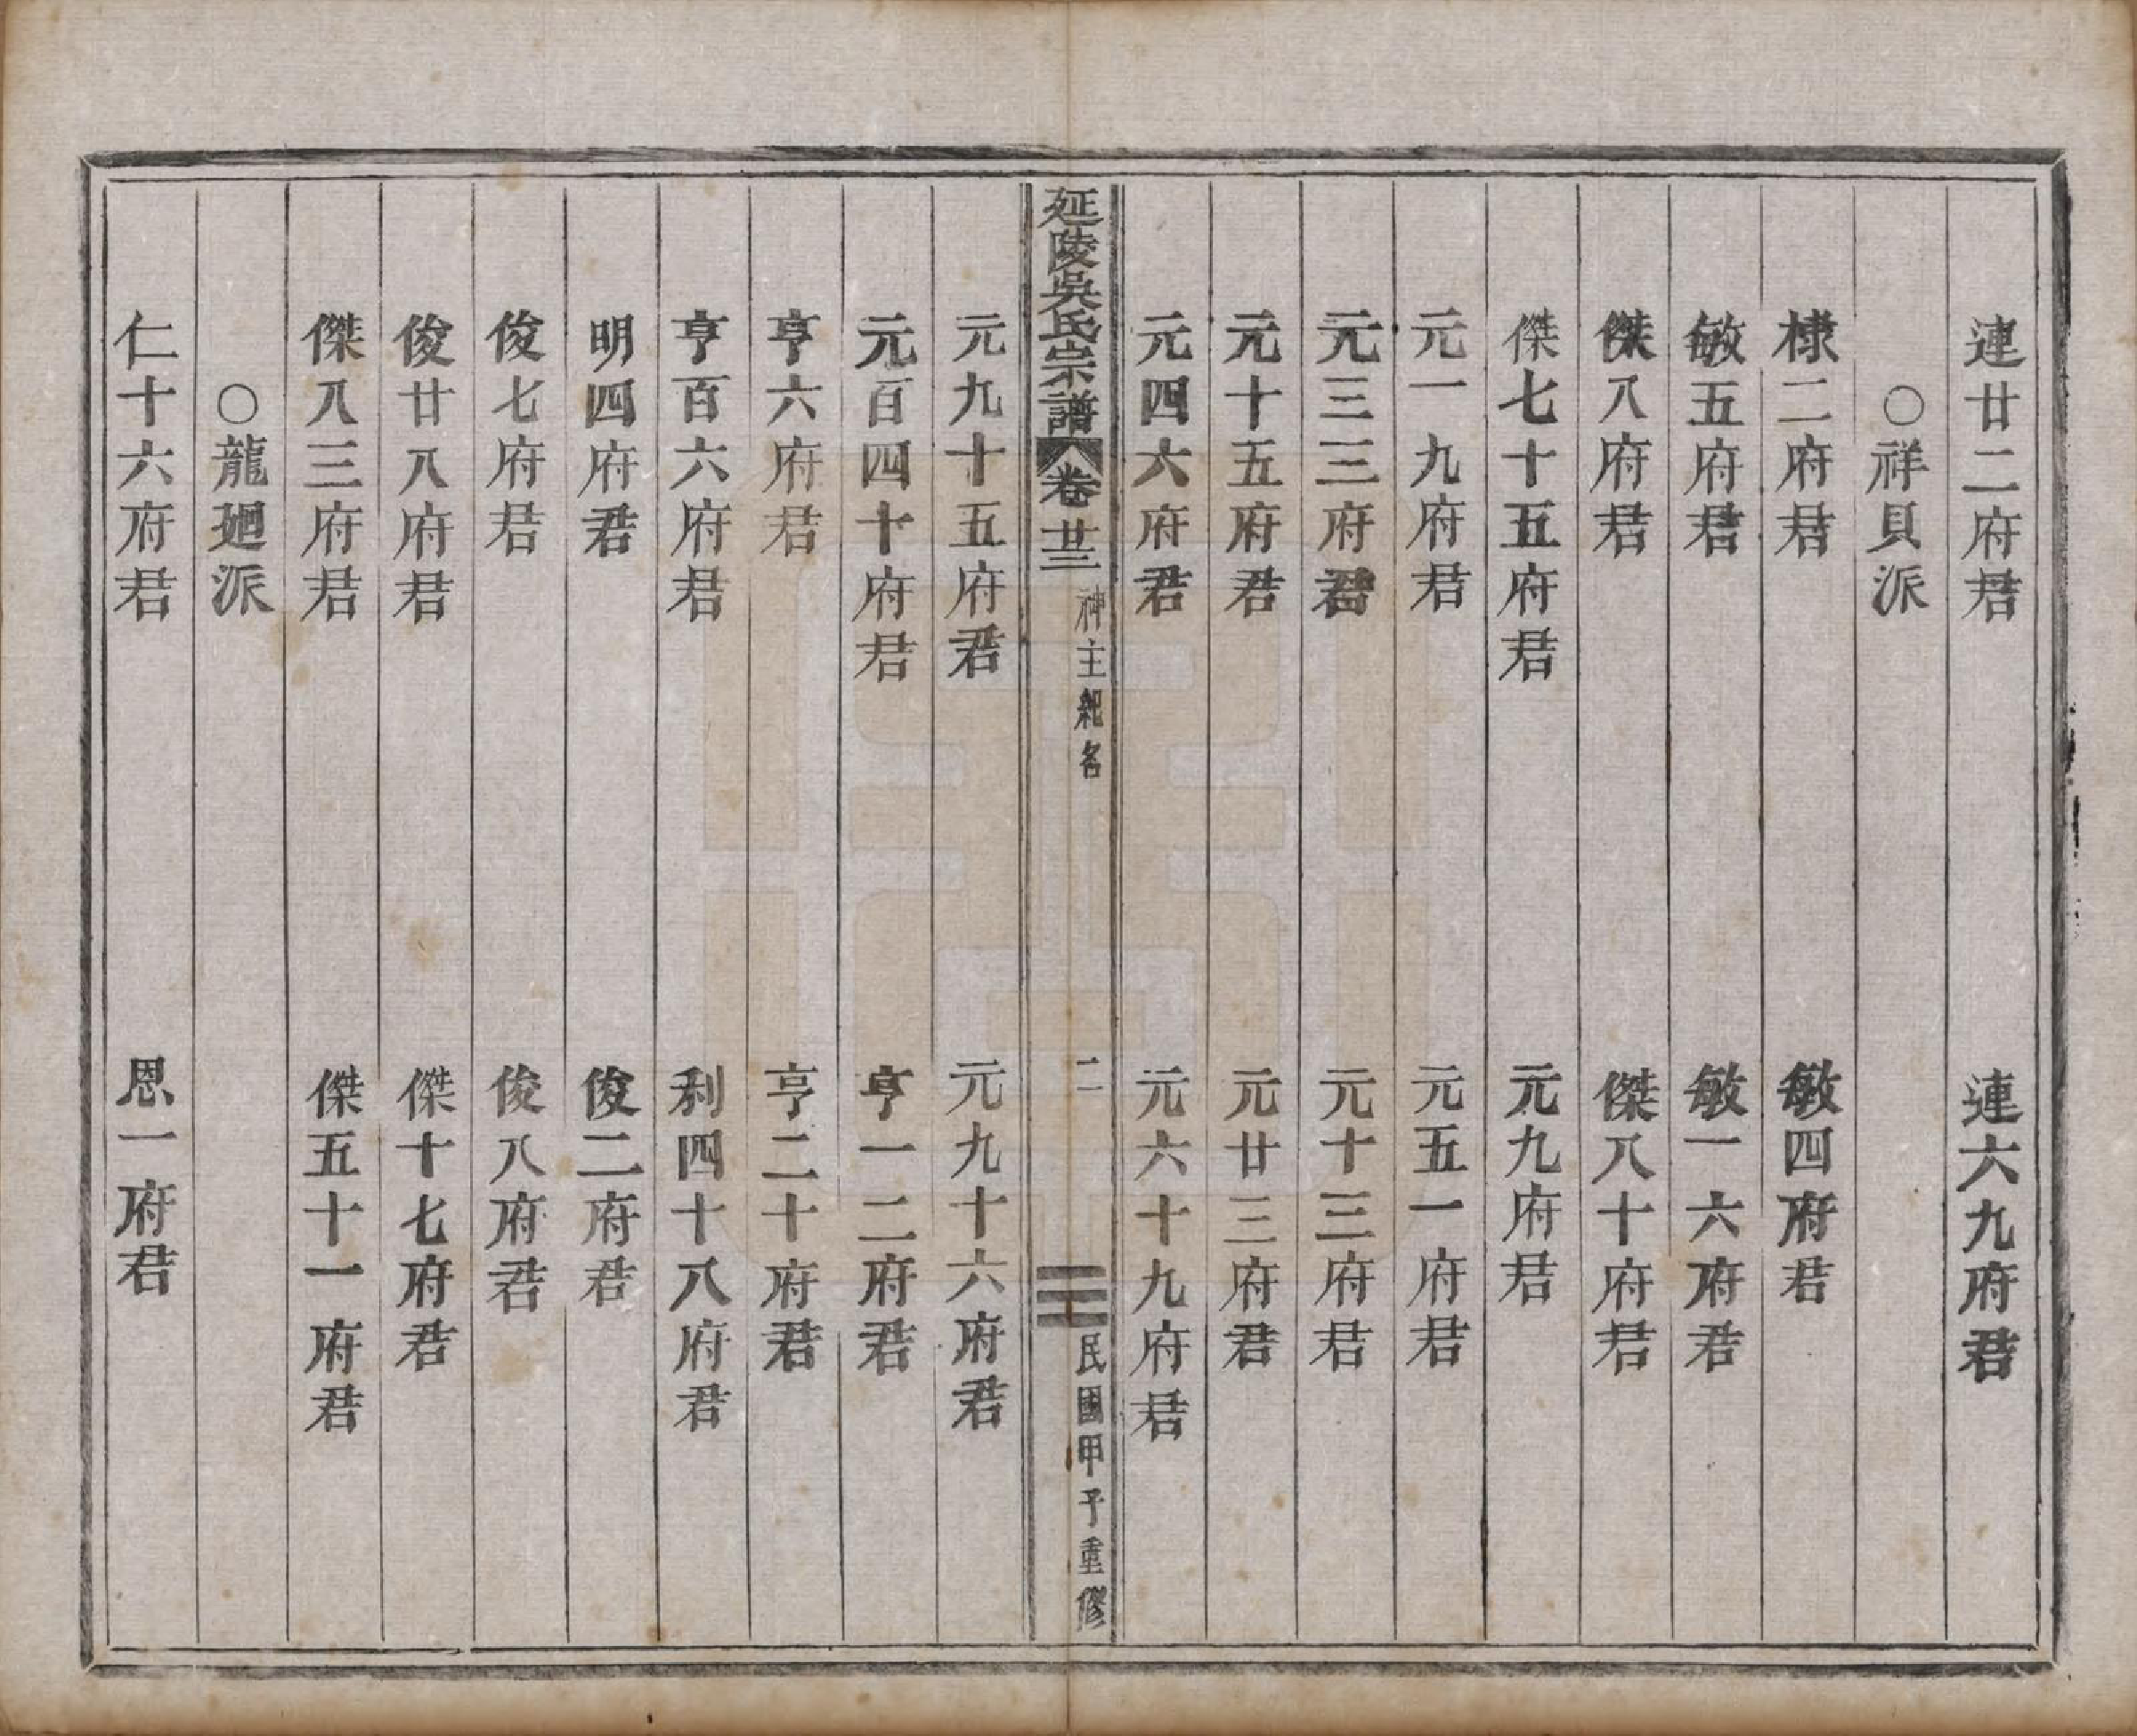 連廿二府君　連六九府君
○祥貝派
棣二府君　敏四府君
敏五府君　敏一六府君
傑八府君　傑八十府君
傑七十五府君　元九府君
元一九府君　元五一府君
元三三府君　元十三府君
元十五府君　元廿三府君
元四六府君　元六十九府君
延陵吳氏宗譜　卷廿三　神主紀名　二　民國甲子重修
元九十五府君　元九十六府君
元百四十府君　亨一二府君
亨六府君　亨二十府君
亨百六府君　利四十八府君
明四府君　俊二府君
俊七府君　俊八府君
俊廿八府君　傑十七府君
傑八三府君　傑五十一府君
○龍廻派
仁十六府君　恩一府君